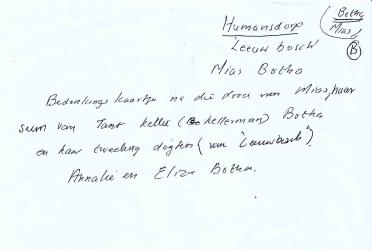 Humansdorp
Botha
Mias
B
'Leeuwbosch'
Mias Botha
Bedankings kaartjie na die dood van Mias, haar
seun van Tant Kellie (Kellerman) Botha
en haar tweeling dogters (van 'Leeuwbosch').
Annalie en Eliza Botha.